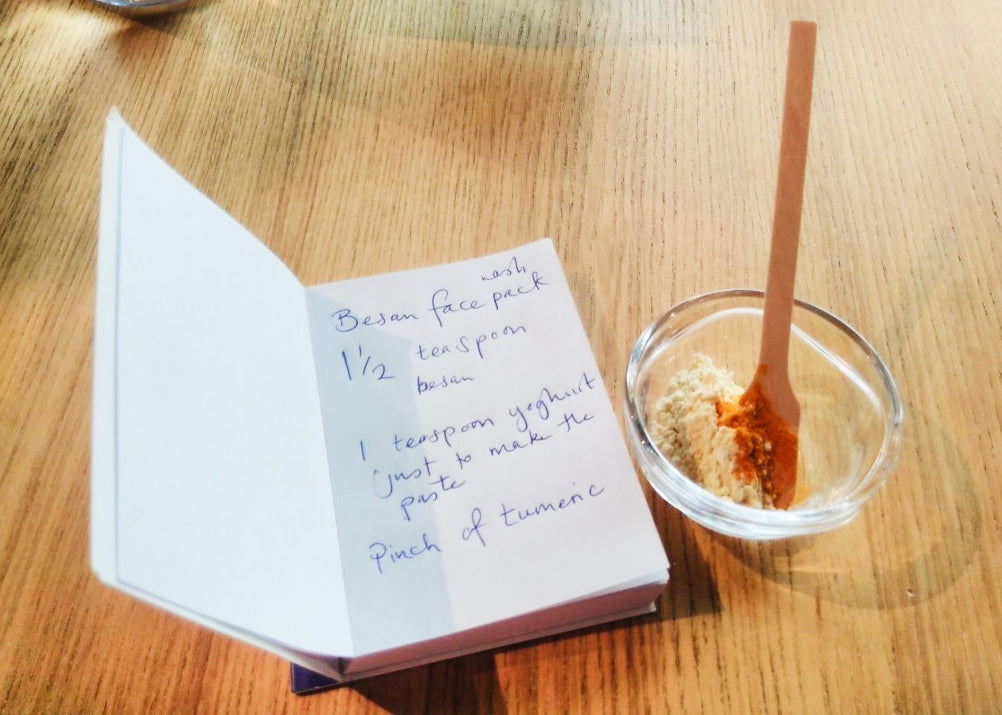 wash
Besan face pack
1 1/2 teaspoon
besan
1 teaspoon yoghurt
(just to make the
paste
Pinch of tumeric